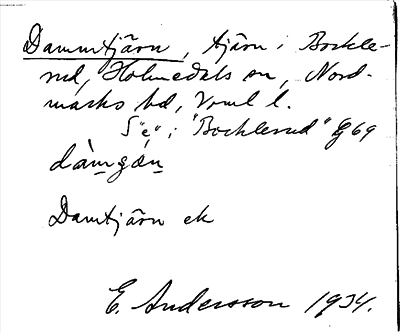 Dammtjärn, tjärn i Bockle-
rud, Holmedals sn, Nord-
marks hd, Vrml l.
S "e" i "Bocklerud" Eg 69
dàm̲ɕæ̀n̲
Damtjärn ek
E. Andersson 1934.